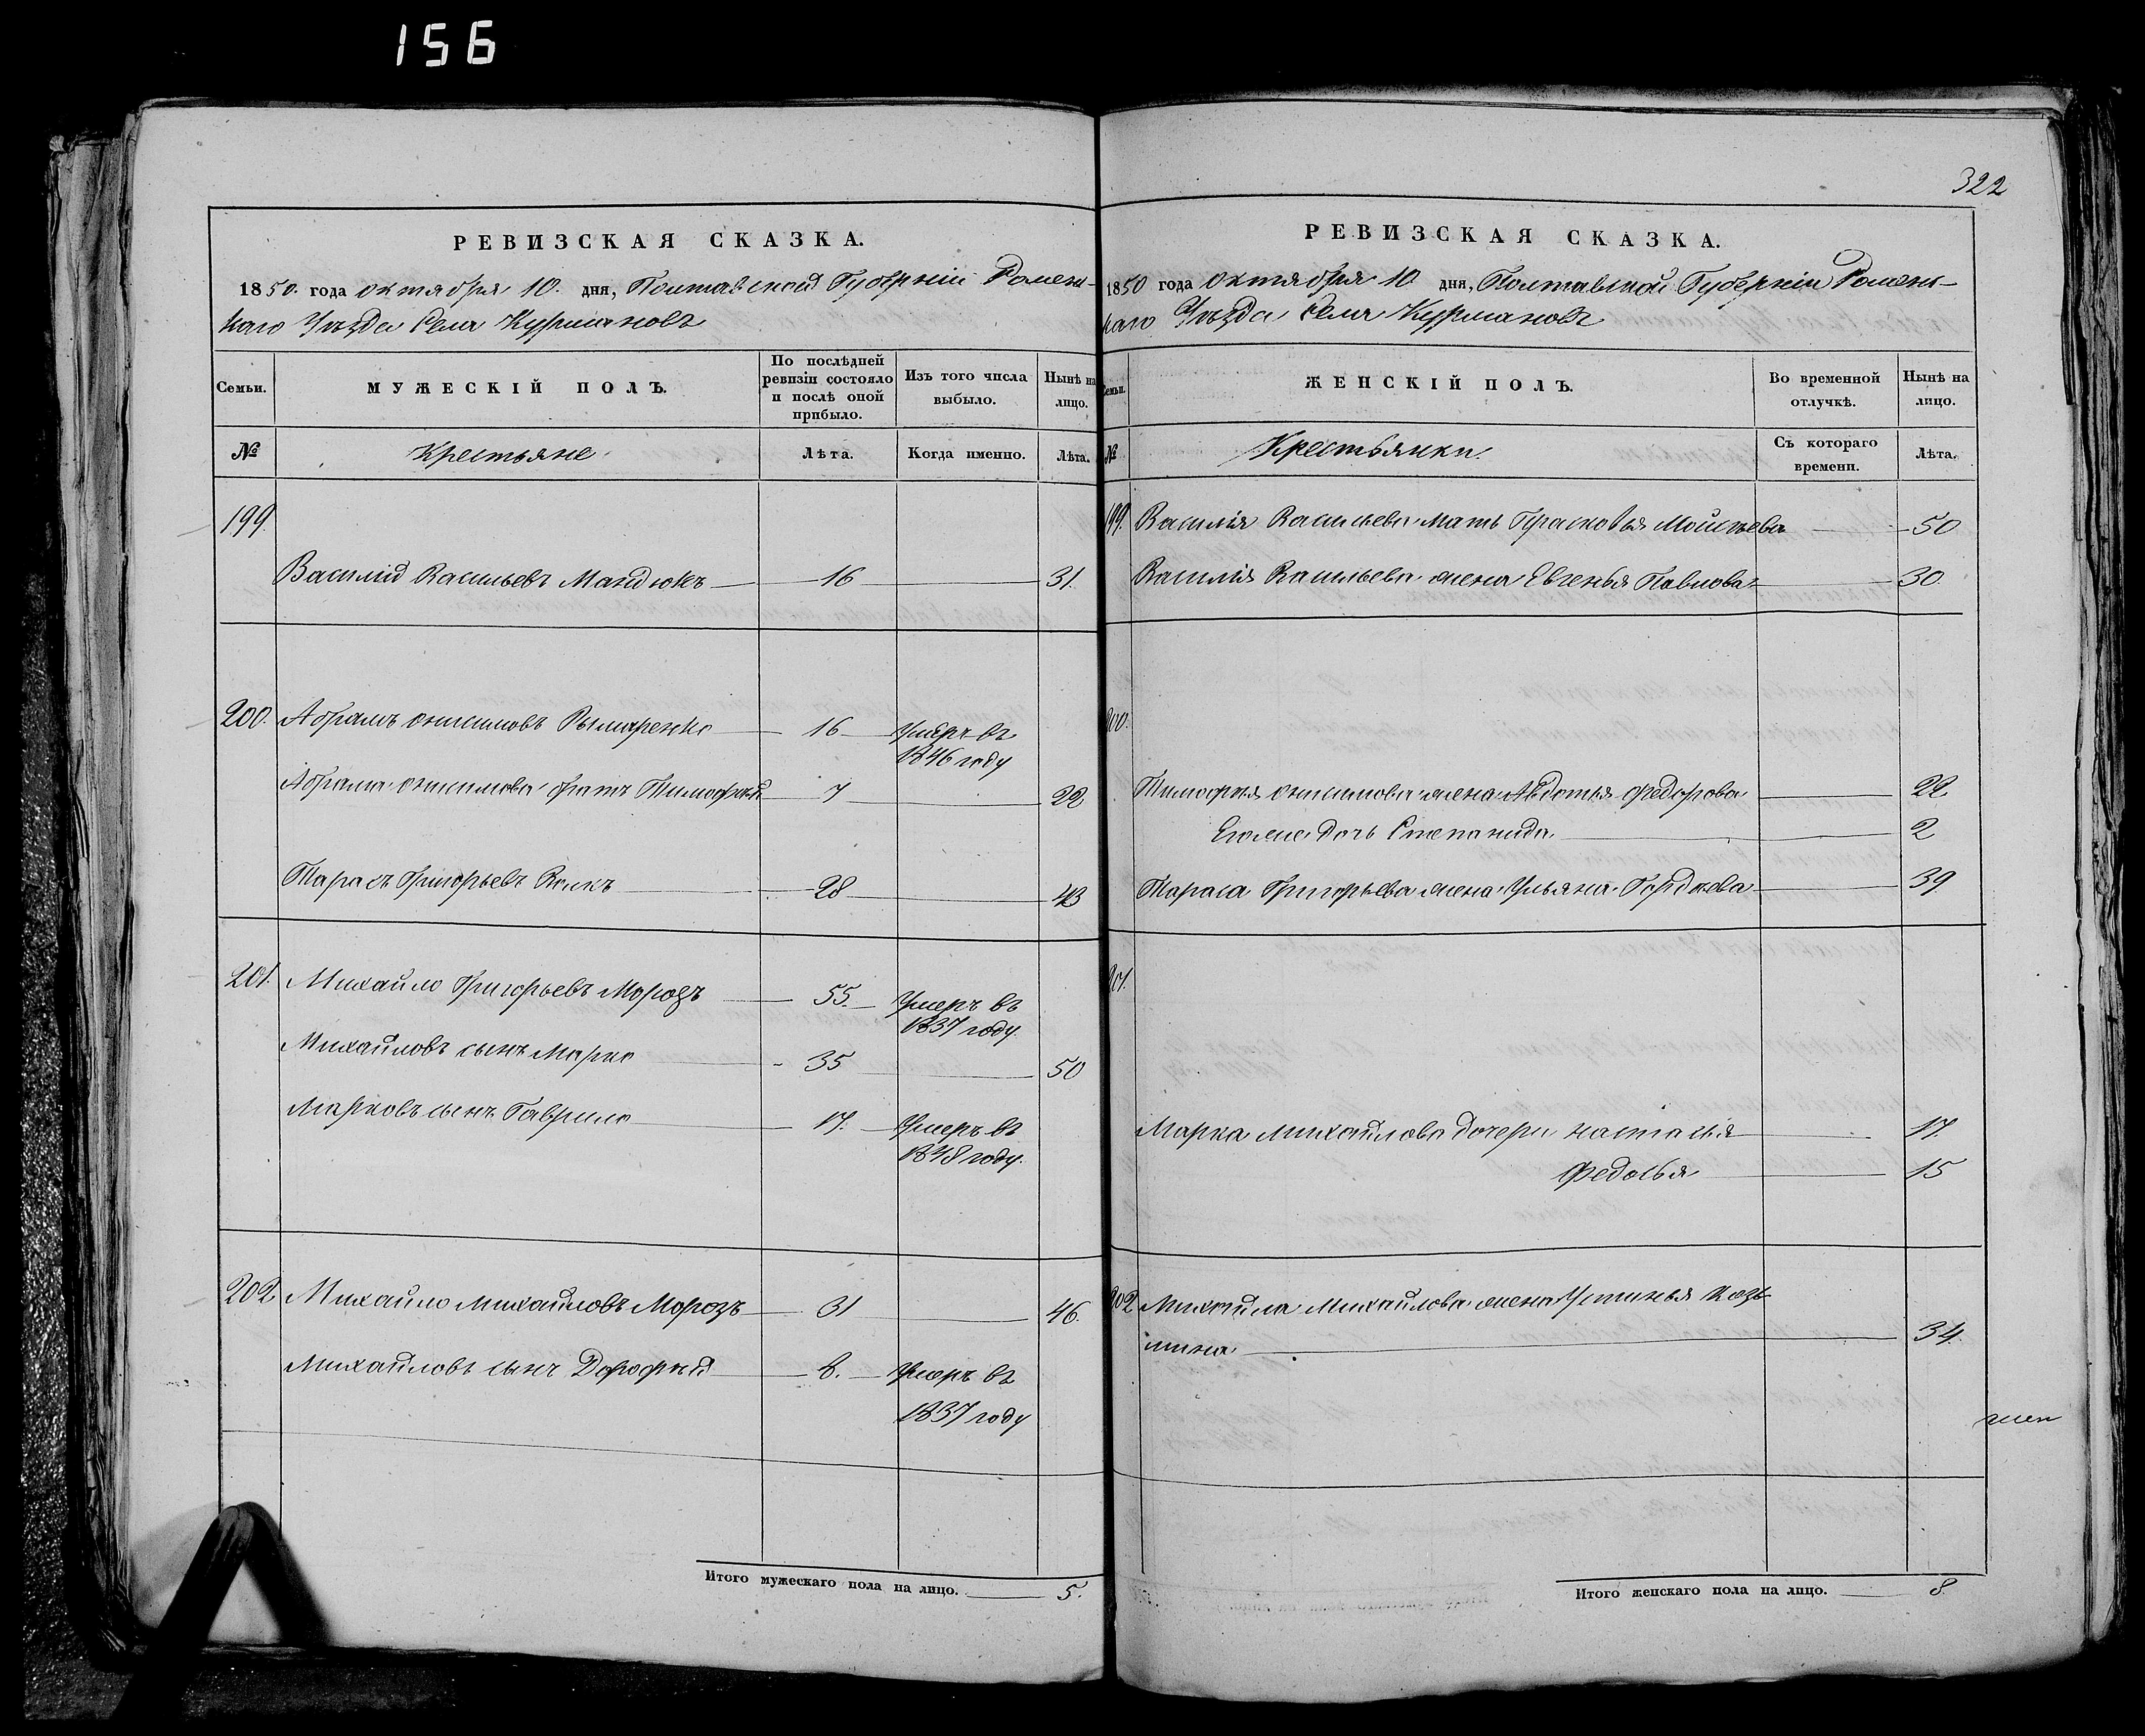 156
РЕВИЗСКАЯ СКАЗКА.
1850. года октября 10. дня, Полтавской Губерніи Ромен-
скаго Уѣзда Села Курмановъ
Семьи.
МУЖЕСКІЙ ПОЛЪ.
По послѣдней
ревизіи состояло
и послѣ оной
прибыло.
Изъ того числа
выбыло.
Нынѣ на
лицо.
№
Крестьяне
Лѣта.
Когда именно.
Лѣта.
199.
Василій Васильевъ Мандюкъ 16 31.
200. Абрамъ Онисимовъ Рымаренко 16 Умеръ въ
1846 году
Абрама Онисимова братъ Тимофѣй 7 22
Тарасъ Григорьевъ 28 43
201. Михайло Григорьевъ Морозъ 55. Умеръ въ
1837 году.
Михайловъ сынъ Марко 35 50
Марковъ сынъ Гаврило 17. Умеръ въ
1848 году.
202 Михайло Михайловъ Морозъ 31 46.
Михайловъ сынъ Дорофѣй 8. Умеръ въ
1837 году
Итого мужескаго пола на лицо. 5.
322
РЕВИЗСКАЯ СКАЗКА.
1850 года октября 10 дня, Полтавской Губерніи Ромен-
скаго Уѣзда Села Курмановъ
Семьи.
ЖЕНСКІЙ ПОЛЪ.
Во временной
отлучкѣ.
Нынѣ на
лицо.
№
Крестьянки.
Съ котораго
времени.
Лѣта.
199. Василія Васильева мать Прасковья Мойсѣева 50
Василія Васильева жена Евгенья Павлова 30.
200.
Тимофея Онисимова жена Авдотья Федорова 22
Его же дочь Степанида 2
Тараса Григорьева жена Ульяна Гордѣева 39
201.
Марка Михайлова дочери Настасья 17.
Федосья 15
202 Михайла Михайлова жена Устинья Козь-
мина 34.
Итого женскаго пола на лицо. 8.